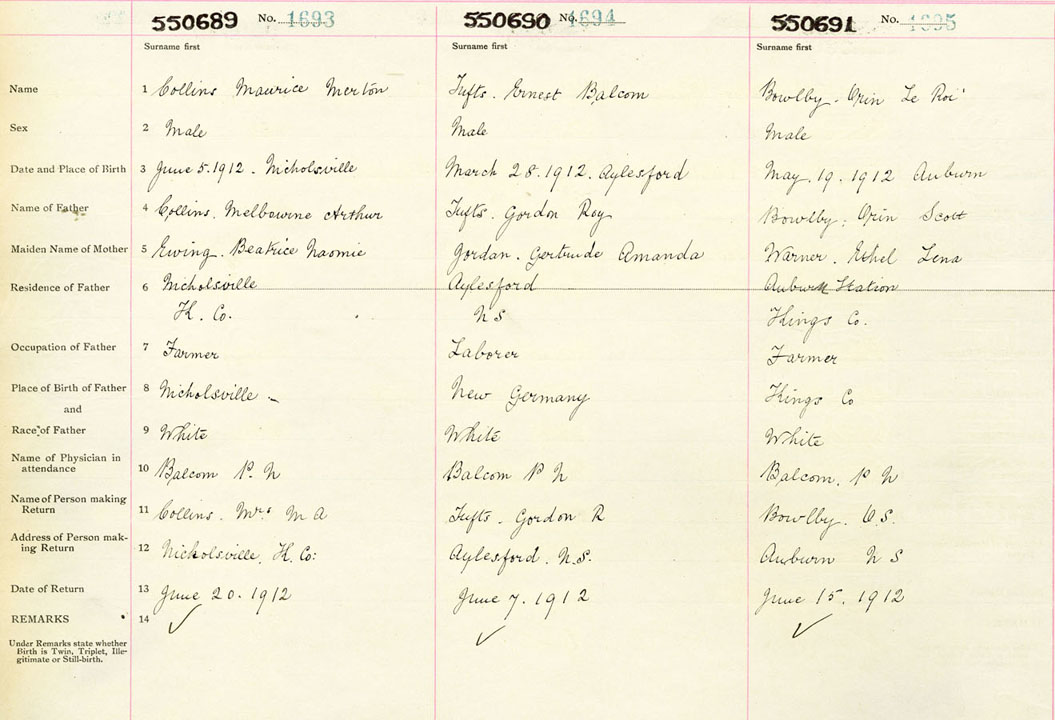 550689 No. 1693 550690 No. 1694 550691 No. 1695
Surname first Surname first Surname first
Name 1 Collins Maurice Merton Tufts. Ernest Balcom Bowlby. Orin Le Roi
Sex 2 Male Male Male
Date and Place of Birth 3 June 5. 1912. Nicholsville March 28. 1912. Aylesford May. 19. 1912 Auburn
Name of Father 4 Collins. Melbourne Arthur Tufts. Gordon Roy Bowlby. Orin Scott
Maiden Name of Mother 5 Ewing. Beatrice Naomie Gordan. Gertrude Amanda Warner. Ethel Lena
Residence of Father 6 Nicholsville Aylesford Auburn Station
K. Co. N S Kings Co.
Occupation of Father 7 Farmer Laborer Farmer
Place of Birth of Father 8 Nicholsville New Germany Kings Co
and
Race of Father 9 White White White
Name of Physician in
attendance 10 Balcom P. N Balcom P N Balcom. P N
Name of Person making
Return 11 Collins. Mrs M A Tufts. Gordon R Bowlby. O.S.
Address of Person mak-
ing Return 12 Nicholsville, K. Co: Aylesford. N.S. Auburn N S
Date of Return 13 June 20. 1912 June 7. 1912 June 15. 1912
REMARKS 14 ✓ ✓ ✓
Under Remarks state whether
Birth is Twin, Triplet, Ille-
gitimate or Still-birth.